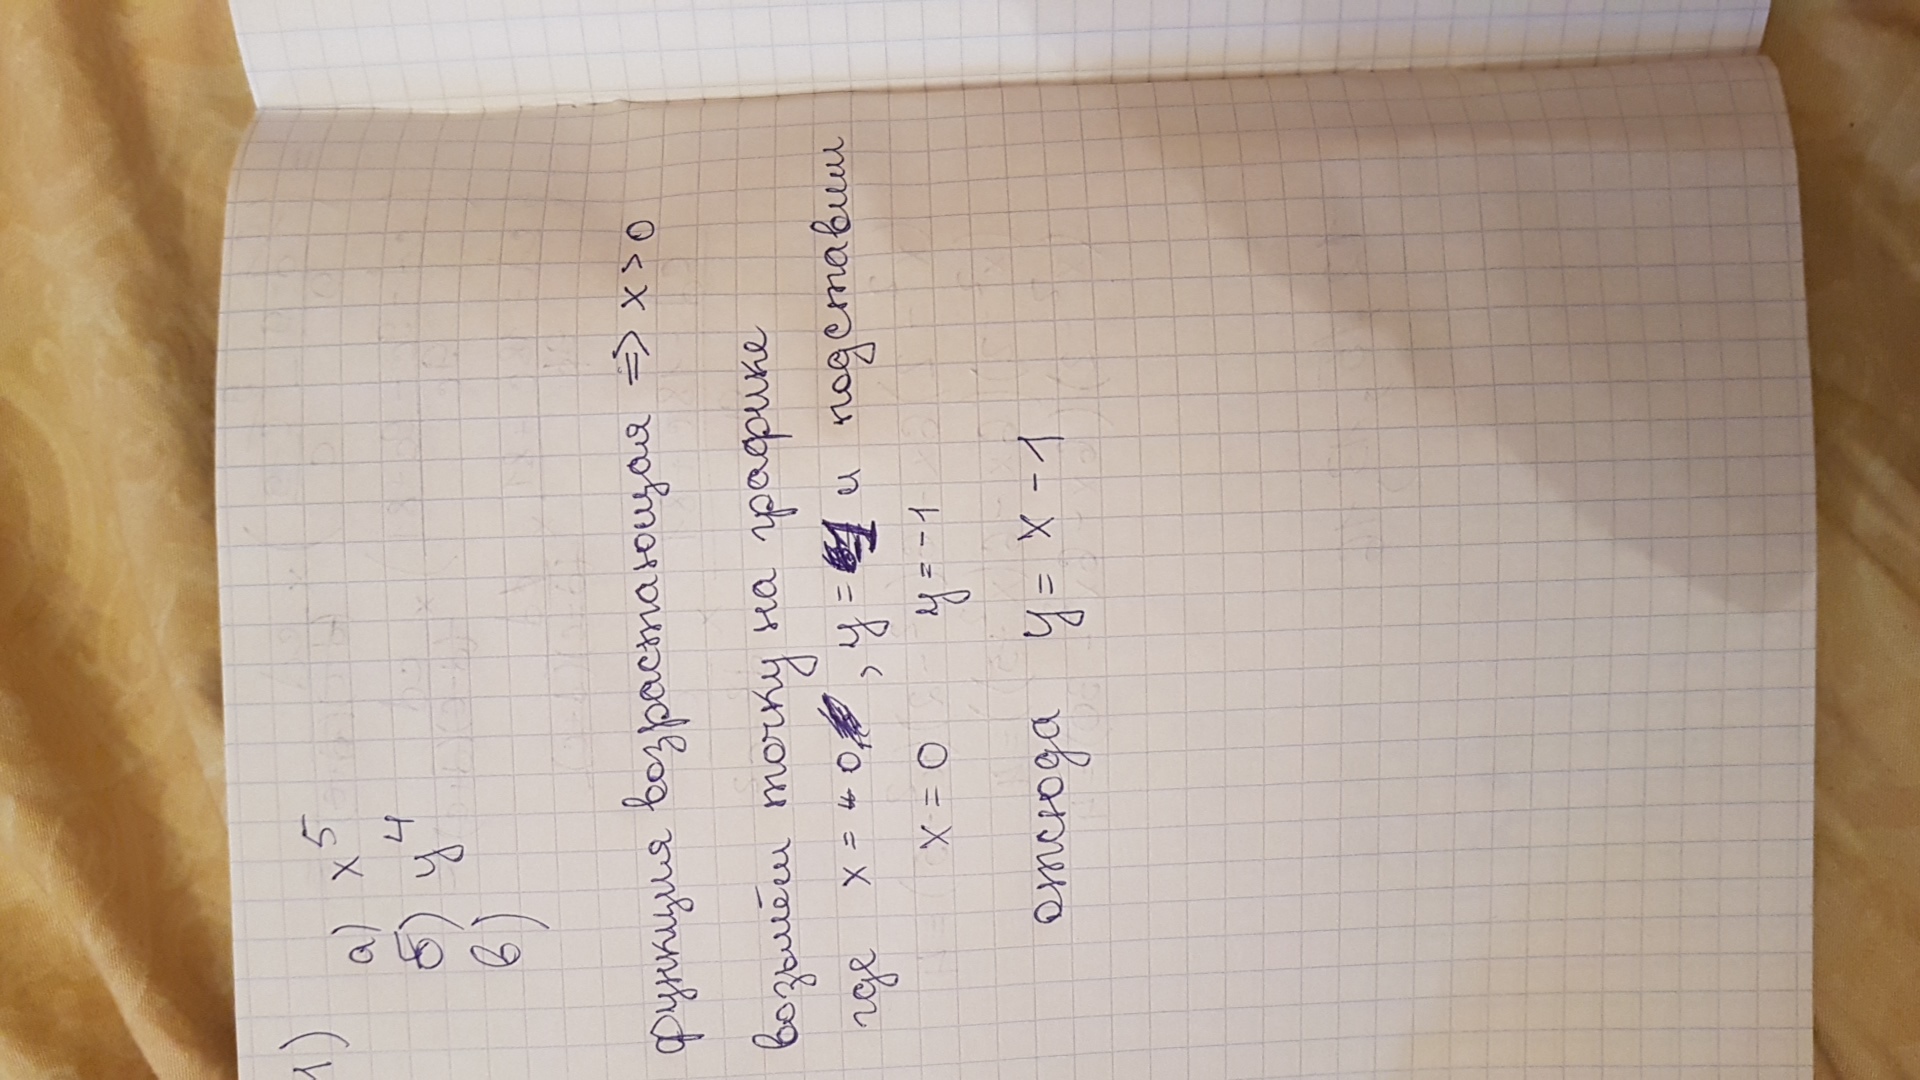 1)
а) x⁵
б) y⁴
в)
функция возрастающая => x > 0
возьмём точку на графике
где x = 0, y = -1 и подставим
x = 0 y = -1
отсюда y = x - 1